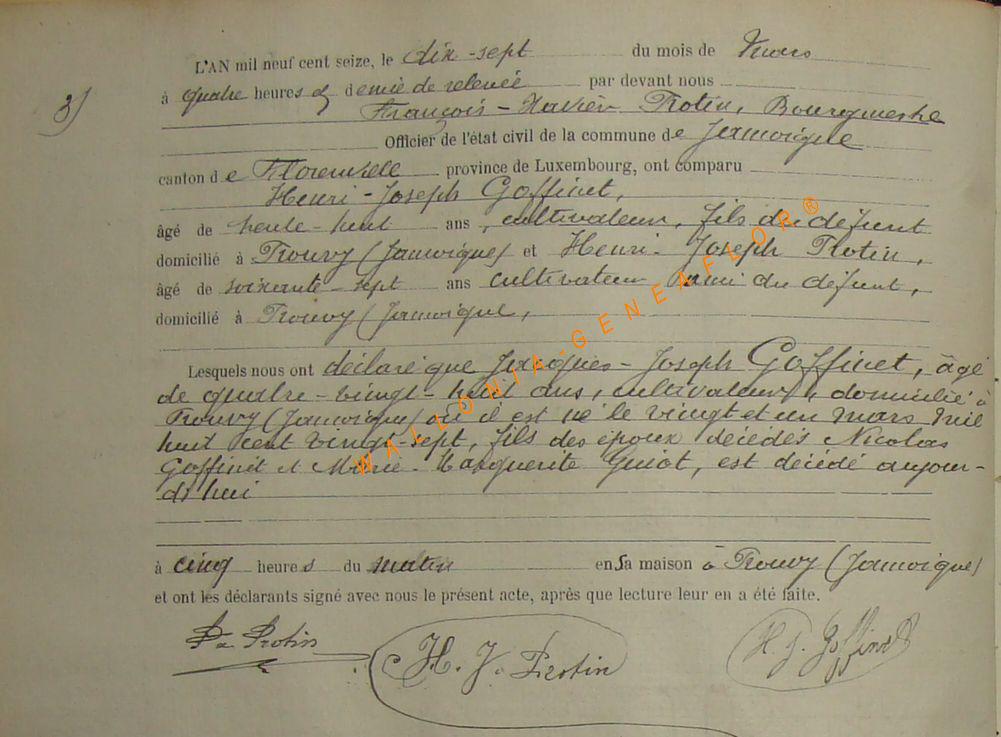 L'AN mil neuf cent seize, le dix-sept du mois de Mars
3) à quatre heures & demie de relevée par devant nous
François-Xavier Protin, Bourgmestre
Officier de l'état civil de la commune de Jamoigne
canton de Florenville province de Luxembourg, ont comparu
Henri-Joseph Goffinet,
âgé de trente-huit ans, cultivateur, fils du défunt
domicilié à Prouvy (Jamoigne) et Henri-Joseph Protin,
âgé de soixante-sept ans cultivateur ami du défunt,
domicilié à Prouvy (Jamoigne,
Lesquels nous ont déclaré que Jacques-Joseph Goffinet, âgé
de quatre-vingt-huit ans, cultivateur, domicilié à
Prouvy (Jamoigne) où il est né le vingt et un mars mil
huit cent vingt-sept, fils des époux décédés Nicolas
Goffinet et Marie-Marguerite Guiot, est décédé aujour-
d'hui
à cinq heures du matin en sa maison à Prouvy (Jamoigne)
et ont les déclarants signé avec nous le présent acte, après que lecture leur en a été faite.
Protin
H. J. Protin
H. J. Goffinet
WALLONIA-GENEAFLOR®